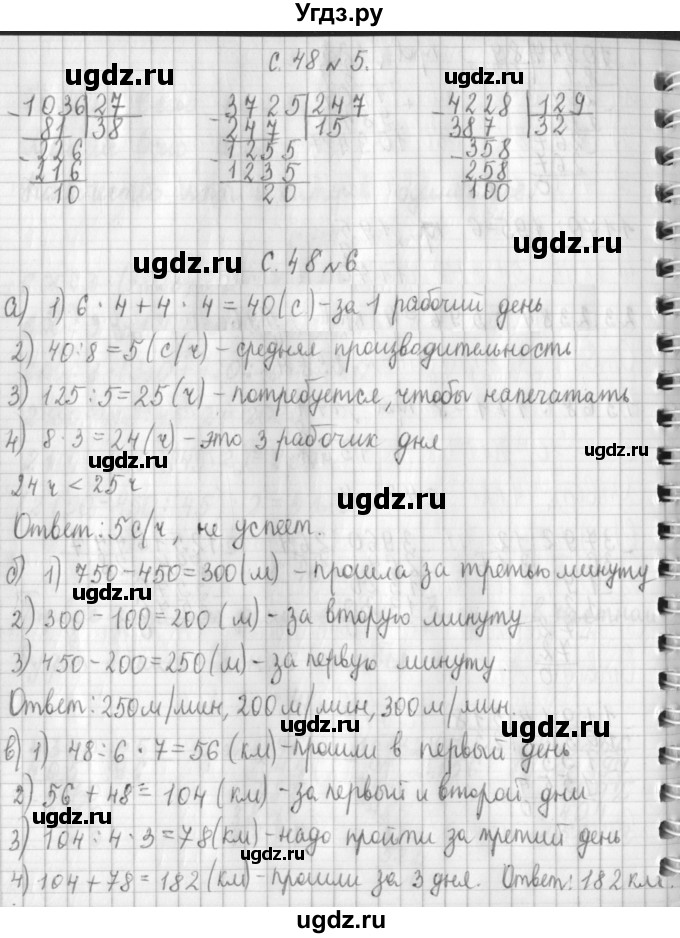 Угдз.ру
с. 48 № 5.
ugdz.ru
ugdz.ru
1036 27 3725 247 4228 129
81 38 247 15 387 32
226 1255 358
216 1235 258
10 20 100
ugdz.ru
ugdz.ru с. 48 № 6
а) 1) 6 · 4 + 4 · 4 = 40 (с) - за 1 рабочий день
2) 40 : 8 = 5 (с/ч) - средняя производительность
3) 125 : 5 = 25 (ч) - потребуется, чтобы напечатать
4) 8 · 3 = 24 (ч) - это 3 рабочих дня
ugdz.ru
ugdz.ru
24 ч < 25 ч
ugdz.ru
Ответ: 5 с/ч, не успеет.
б) 1) 750 - 450 = 300 (м) - прошла за третью минуту
ugdz.ru
2) 300 - 100 = 200 (м) - за вторую минуту
3) 450 - 200 = 250 (м) - за первую минуту.
Ответ: 250 м/мин, 200 м/мин, 300 м/мин.
ugdz.ru
ugdz.ru
в) 1) 48 : 6 · 7 = 56 (км) - прошли в первый день
2) 56 + 48 = 104 (км) - за первый и второй дни
3) 104 : 4 · 3 = 78 (км) - надо пройти за третий день
ugdz.ru
4) 104 + 78 = 182 (км) - прошли за 3 дня. Ответ: 182 км.
ugdz.ru
ugdz.ru